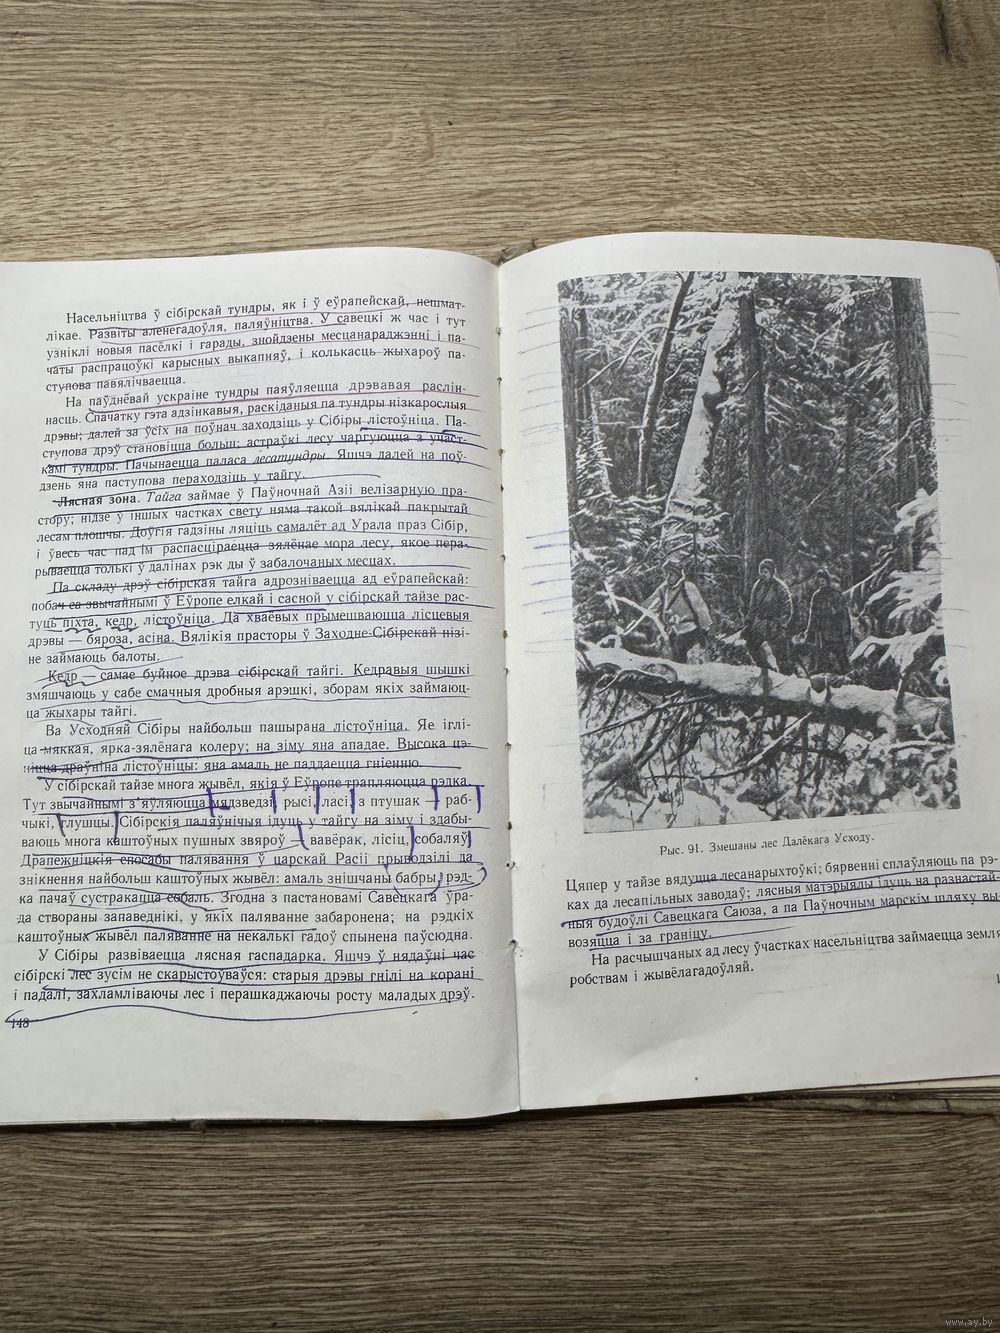 Насельніцтва ў сібірскай тундры, як і ў еўрапейскай, нешмат-
лікае. Развіты аленегадоўля, паляўніцтва. У савецкі ж час і тут
узніклі новыя пасёлкі і гарады, знойдзены месцанараджэнні і па-
чаты распрацоўкі карысных выкапняў, і колькасць жыхароў па-
ступова павялічваецца.
На паўднёвай ускраіне тундры паяўляецца дрэвавая раслін-
насць. Спачатку гэта адзінкавыя, раскіданыя па тундры нізкарослыя
дрэвы; далей за ўсіх на поўнач заходзіць у Сібіры лістоўніца. Па-
ступова дрэў становіцца больш; астраўкі лесу чаргуюцца з участ-
камі тундры. Пачынаецца паласа лесатундры. Яшчэ далей на поў-
дзень яна паступова пераходзіць у тайгу.
Лясная зона. Тайга займае ў Паўночнай Азіі велізарную пра-
стору; нідзе ў іншых частках свету няма такой вялікай пакрытай
лесам плошчы. Доўгія гадзіны ляціць самалёт ад Урала праз Сібір,
і ўвесь час пад ім распасціраецца зялёнае мора лесу, якое пера-
рываецца толькі ў далінах рэк ды ў забалочаных месцах.
Па складу дрэў сібірская тайга адрозніваецца ад еўрапейскай:
побач са звычайнымі ў Еўропе елкай і сасной у сібірскай тайзе рас-
туць піхта, кедр, лістоўніца. Да хваёвых прымешваюцца лісцевыя
дрэвы — бяроза, асіна. Вялікія прасторы ў Заходне-Сібірскай нізі-
не займаюць балоты.
Кедр — самае буйное дрэва сібірскай тайгі. Кедравыя шышкі
змяшчаюць у сабе смачныя дробныя арэшкі, зборам якіх займаюц-
ца жыхары тайгі.
Ва Усходняй Сібіры найбольш пашырана лістоўніца. Яе іглі-
ца мяккая, ярка-зялёнага колеру; на зіму яна ападае. Высока цэ-
ніцца драўніна лістоўніцы: яна амаль не паддаецца гніенню.
У сібірскай тайзе многа жывёл, якія ў Еўропе трапляюцца рэдка.
Тут звычайнымі з'яўляюцца мядзведзі, рысі, ласі, з птушак — раб-
чыкі, глушцы. Сібірскія паляўнічыя ідуць у тайгу на зіму і здабы-
ваюць многа каштоўных пушных звяроў — вавёрак, лісіц, собаляў.
Драпежніцкія спосабы палявання ў царскай Расіі прыводзілі да
знікнення найбольш каштоўных жывёл: амаль знішчаны бабры, рэд-
ка пачаў сустракацца собаль. Згодна з пастановамі Савецкага ўра-
да створаны запаведнікі, у якіх паляванне забаронена; на рэдкіх
каштоўных жывёл паляванне на некалькі гадоў спынена паўсюдна.
У Сібіры развіваецца лясная гаспадарка. Яшчэ ў нядаўні час
сібірскі лес зусім не скарыстоўваўся: старыя дрэвы гнілі на корані
і падалі, захламліваючы лес і перашкаджаючы росту маладых дрэў.
148
Рыс. 91. Змешаны лес Далёкага Усходу.
Цяпер у тайзе вядуцца лесанарыхтоўкі; бярвенні сплаўляюць па рэ-
ках да лесапільных заводаў; лясныя матэрыялы ідуць на разнастай-
ныя будоўлі Савецкага Саюза, а па Паўночным марскім шляху вы-
возяцца і за граніцу.
На расчышчаных ад лесу ўчастках насельніцтва займаецца земля
робствам і жывёлагадоўляй.
www.ay.by